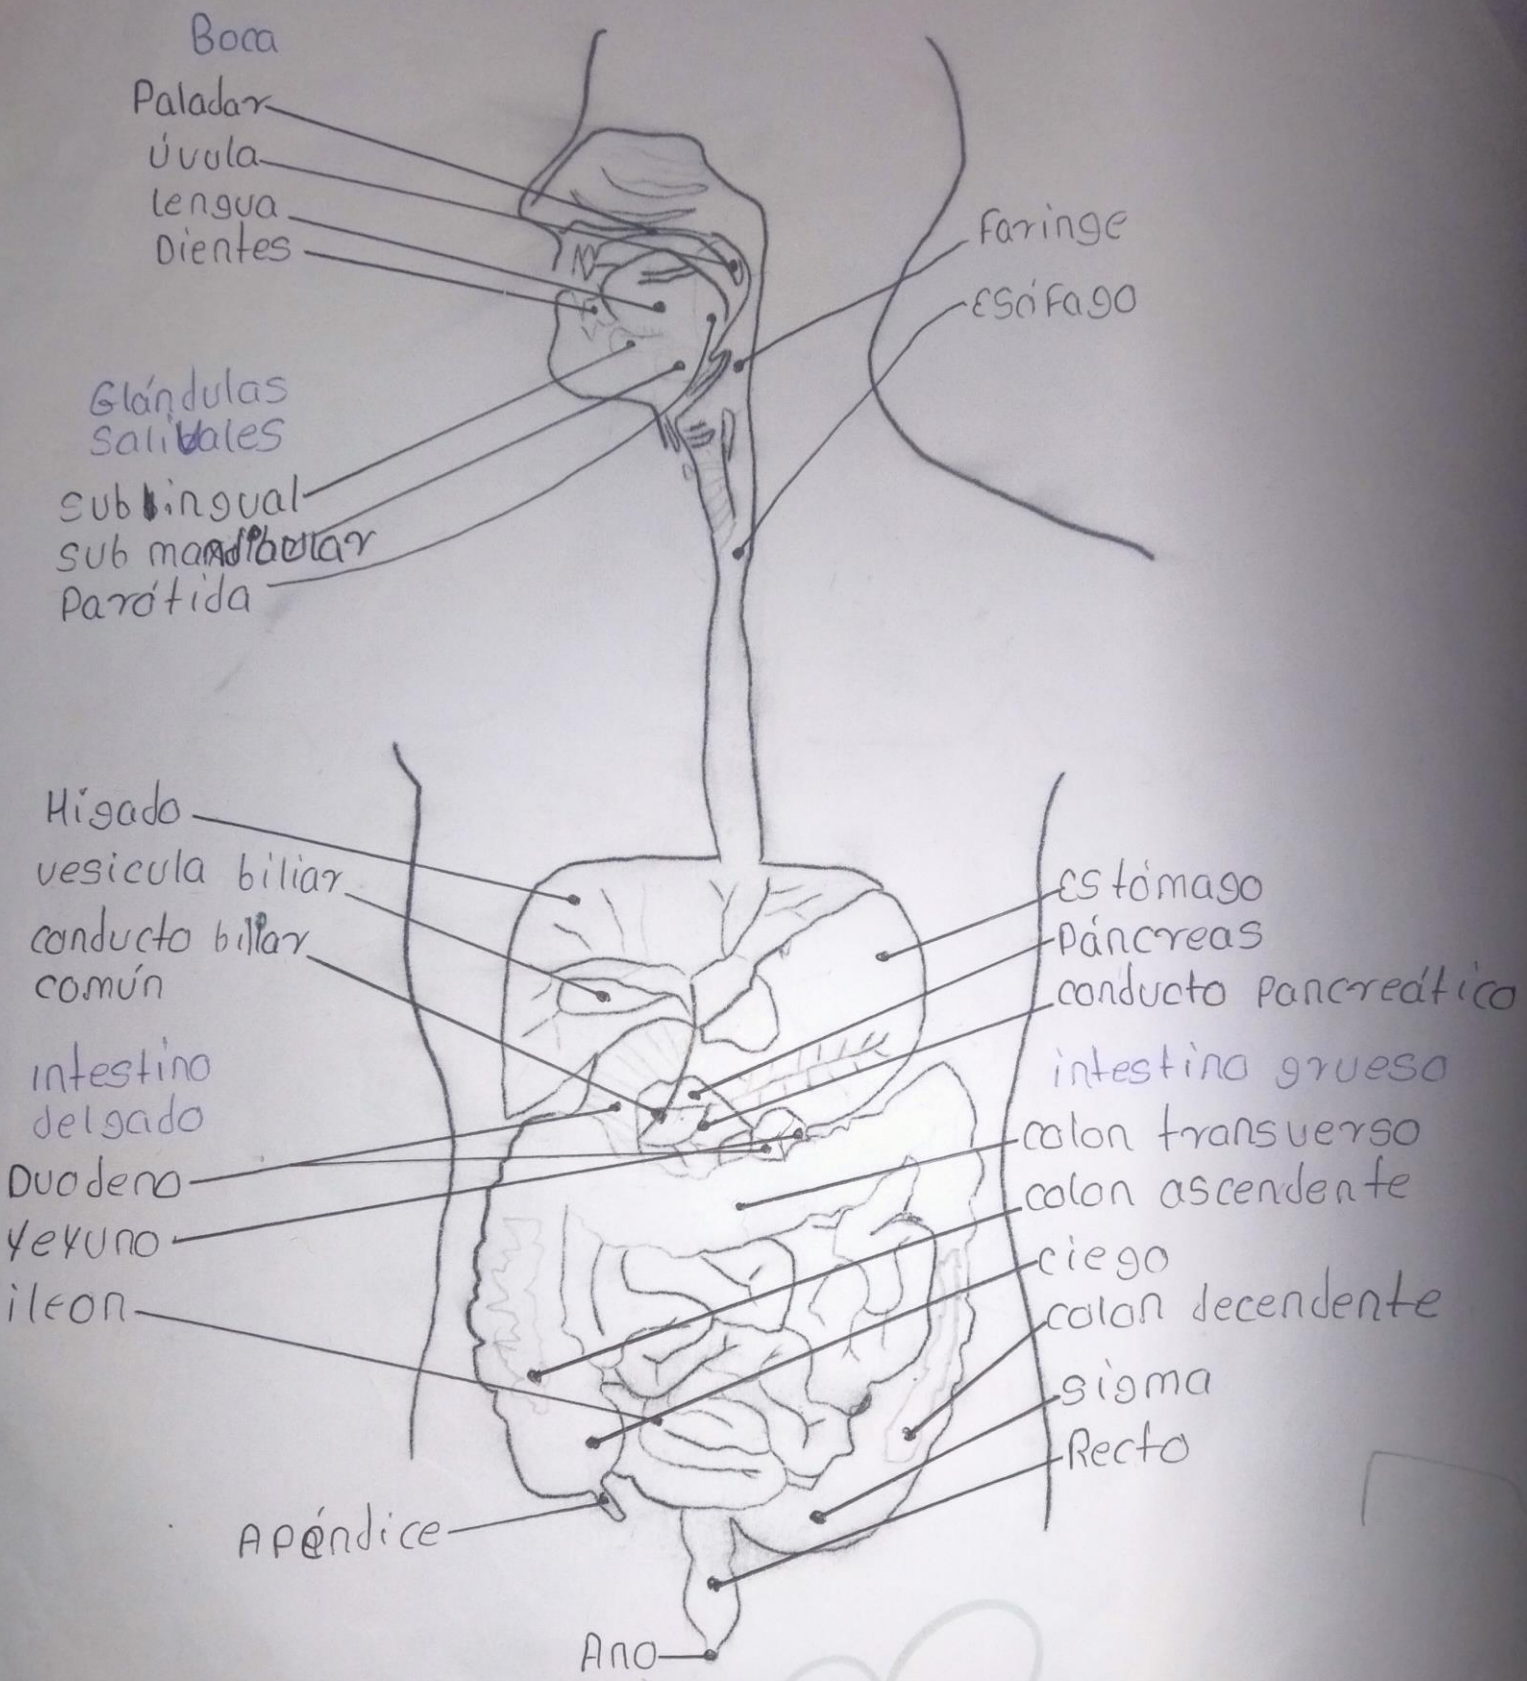 Boca
Paladar
úvula
lengua
Dientes
Faringe
ESÓFAGO
Glándulas
Salivales
sublingual
sub mandibular
Parótida
Higado
vesicula biliar
conducto biliar
común
intestino
delgado
Duodeno
Yeyuno
ileon
Apéndice
Ano
Estómago
Páncreas
conducto pancreático
intestino grueso
colon transverso
colon ascendente
ciego
colon decendente
sigma
Recto